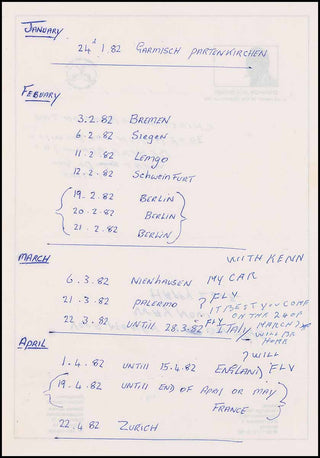 JANUARY
24.1.82 GARMISCH PARTENKIRCHEN
FEBUARY
3.2.82 BREMEN
6.2.82 Siegen
11.2.82 Lemgo
12.2.82 SchweinFURT
19.2.82 BERLIN
20.2.82 BERLIN
21.2.82 BERLIN
WITH KENN
MARCH
6.3.82 NIENHAUSEN MY CAR
21.3.82 PALERMO ? FLY
22.3.82 UNTILL 28.3.82 ITALY
FLY
IT BEST YOU COME
ON THE 24 OF
MARCH
WILL BE
HOME
? WILL
APRIL
1.4.82 UNTILL 15.4.82 ENGLAND FLY
19.4.82 UNTILL END OF APRIL OR MAY
FRANCE
22.4.82 ZURICH